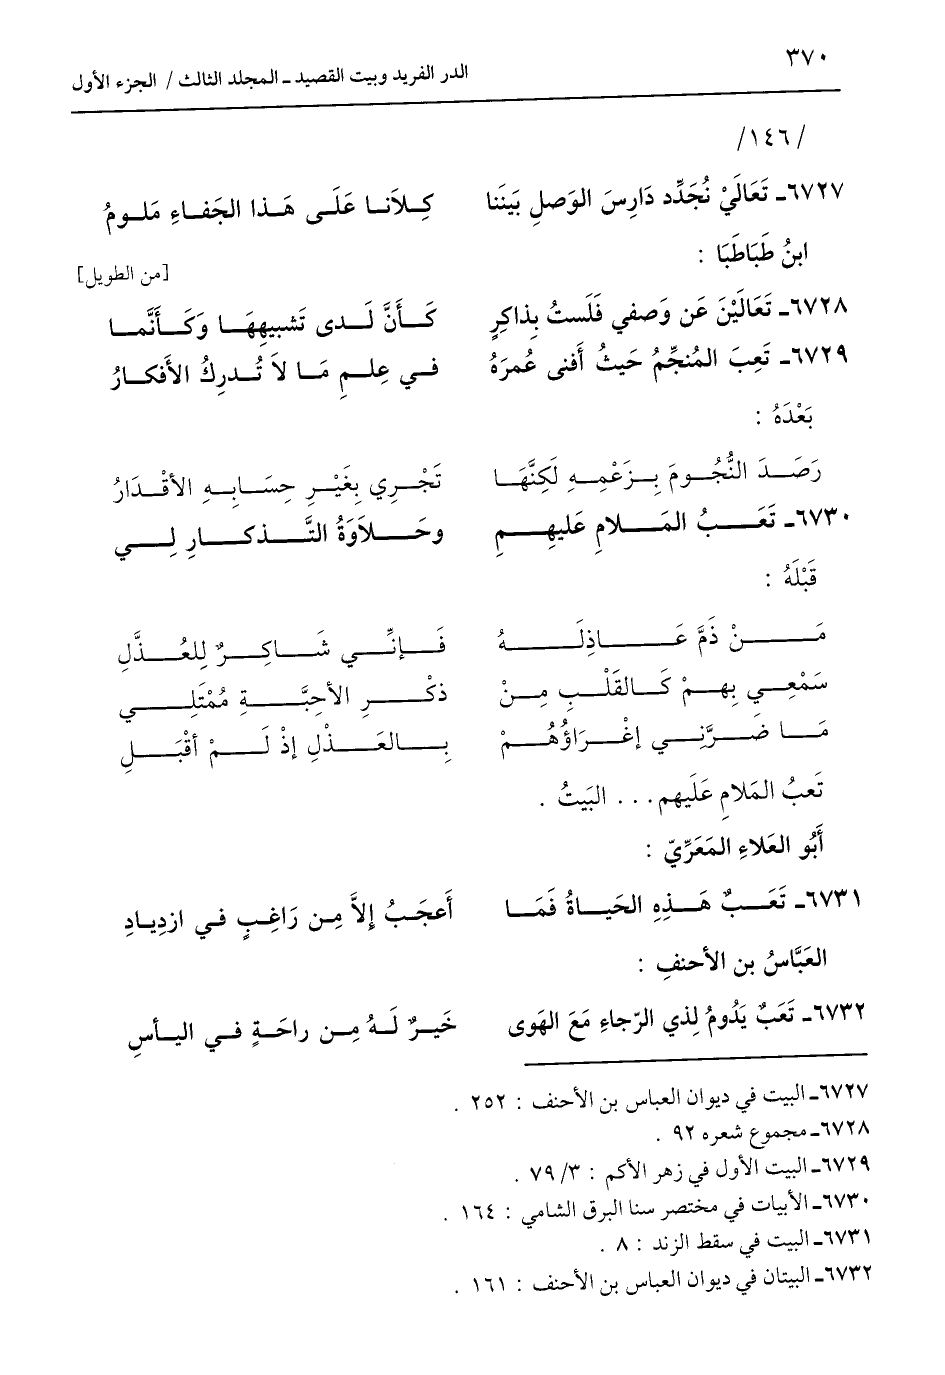 ٣٧٠
الدر الفريد وبيت القصيد ـ المجلد الثالث / الجزء الأول
/١٤٦/
٦٧٢٧ـ تَعَالَيْ نُجَدِّد دَارِسَ الوَصلِ بَيَننَا كِلاَنا عَلَى هَذا الجَفاءِ مَلومُ
ابنُ طَبَاطَبَا :
[من الطويل]
٦٧٢٨ـ تَعَالَيْنَ عَن وَصفي فَلَستُ بِذاكِرٍ كَأَنَّ لَدى تَشبيهِهَا وَكَأَنَّما
٦٧٢٩ـ تَعِبَ المُنجِّمُ حَيثُ أَفنى عُمرَهُ في عِلمِ مَا لاَ تُدرِكُ الأَفكارُ
بَعْدَهُ :
رَصَدَ النُّجُومَ بِزَعْمِهِ لَكِنَّهَا تَجْرِي بِغَيْرِ حِسَابِهِ الأَقْدَارُ
٦٧٣٠ـ تَعَبُ المَلامِ عَليهِمِ وحَلاَوَةُ التَّذكارِ لِي
قَبْلَهُ :
مَنْ ذَمَّ عَاذِلَهُ فَإنِّي شَاكِرٌ لِلعُذَّلِ
سَمْعِي بِهِمْ كَالقَلْبِ مِنْ ذكْرِ الأحِبَّةِ مُمْتَلِي
مَا ضَرَّنِي إغْرَاؤُهُمْ بِالعَذْلِ إذْ لَمْ أقْبَلِ
تَعبُ المَلامِ عَلَيهم... البَيتُ .
أَبُو العَلاءِ المَعَرِّيّ :
٦٧٣١ـ تَعَبٌ هَذِهِ الحَياةُ فَمَا أَعجَبُ إلاَّ مِن رَاغِبٍ في ازدِيادِ
العَبَّاسُ بن الأحنفِ :
٦٧٣٢ـ تَعَبٌ يَدُومُ لِذي الرّجاءِ مَعَ الهَوى خَيرٌ لَهُ مِن راحَةٍ في اليأسِ
٦٧٢٧ـ البيت في ديوان العباس بن الأحنف : ٢٥٢ .
٦٧٢٨ـ مجموع شعره ٩٢ .
٦٧٢٩ـ البيت الأول في زهر الأكم : ٧٩/٣ .
٦٧٣٠ـ الأبيات في مختصر سنا البرق الشامي : ١٦٤ .
٦٧٣١ـ البيت في سقط الزند : ٨ .
٦٧٣٢ـ البيتان في ديوان العباس بن الأحنف : ١٦١ .